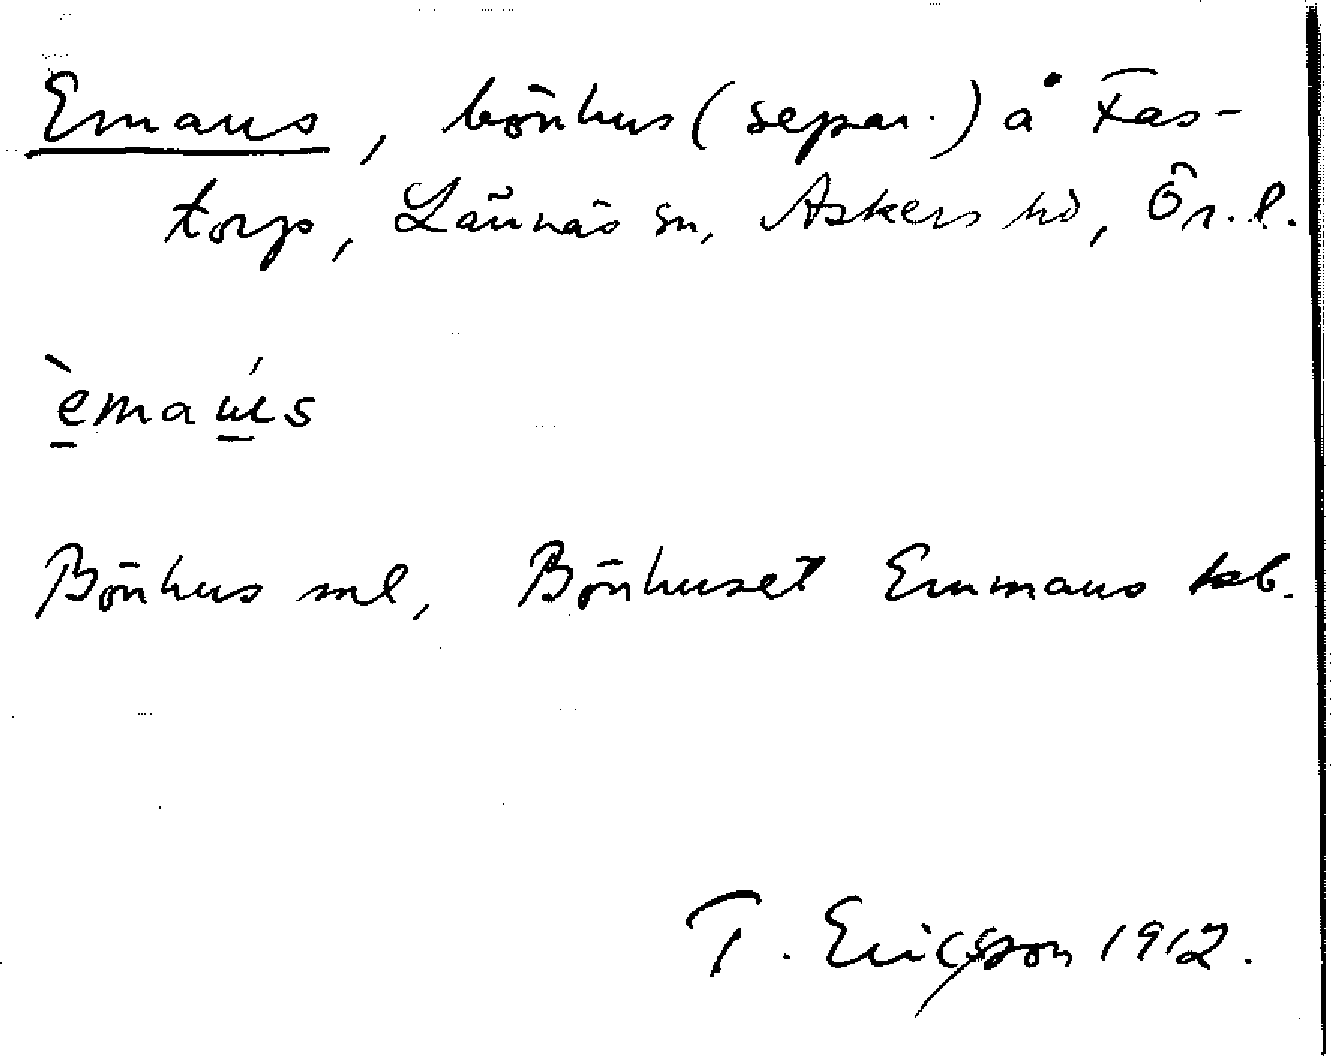 Emaus, bönhus (separ.) å Fas-
torp, Lännäs sn, Askers hd, Ör. l.
èmaús
Bönhus ml, Bönhuset Emmaus tsb.
T. Ericsson 1912.